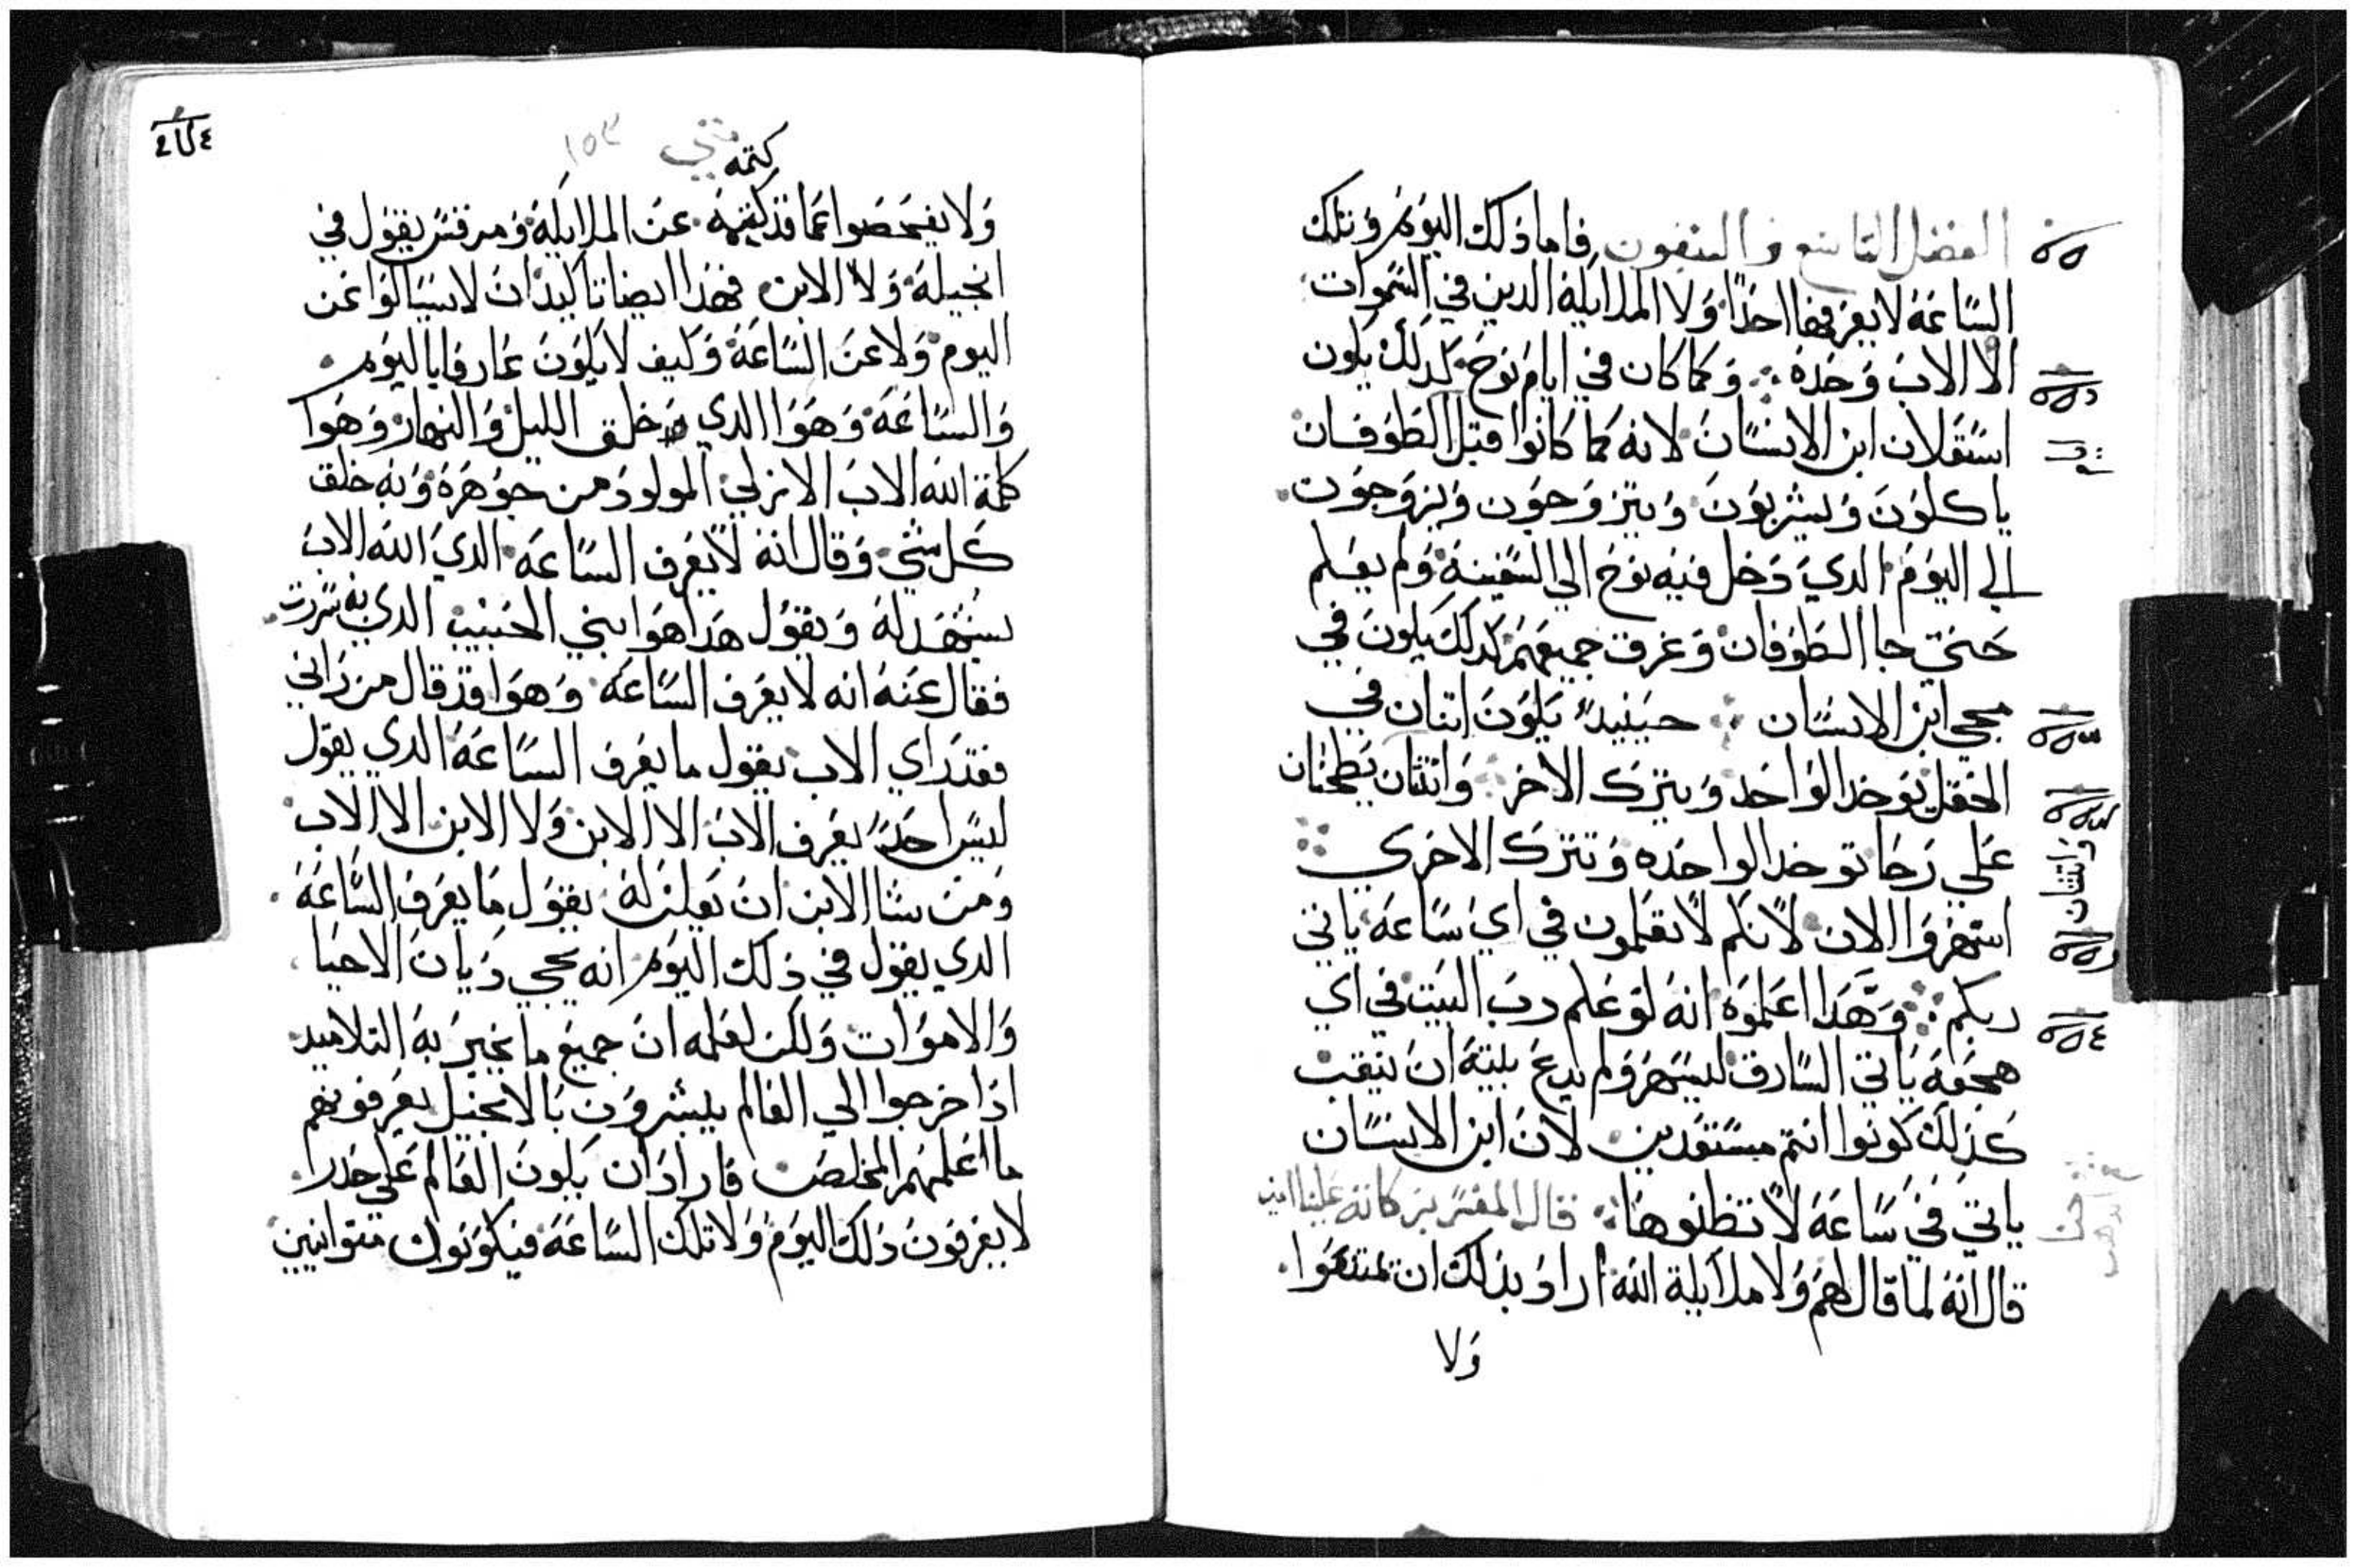 الفصل التاسع والستون فاما ذلك اليوم وتلك
الساعة لا يعرفها احدا ولا الملايكة الدين في السموات
الا الاب وحده وكما كان في ايام نوح كدلك يكون
استقلان ابن الانسان لانه كما كانوا قبل الطوفان
ياكلون ويشربون ويتزوجون ويزوجون
الي اليوم الدي دخل فيه نوح الي السفينة ولم يعلم
حتي جا الطوفان وغرق جميعهم كدلك يكون في
مجي ابن الانسان حينيد يكون اتنان في
الحقل يوخد الواحد ويترك الاخر واتنتان يطحنان
علي رحا توخد الواحده وتترك الاخري
اسهروا الان لانكم لا تعلمون في اي ساعة ياتي
ربكم وهدا اعلموه انه لو علم رب البيت في اي
هجعة ياتي السارق ليسهر ولم يدع بيته ان ينقب
كذلك كونوا انتم مستعدين لان ابن الانسان
ياتي في ساعة لا تظنوها قال المفسر بركاته علينا امين
قال انه لما قال لهم ولا ملايكة الله اراد بذلك ان يمتنعوا
ولا
واتنتان
متي ١٥٣
كتمه
ولا يفحصوا عما قد كتمه عن الملايكة ومرقس يقول في
انجيله ولا الابن فهدا ايضا تاكيد ان لا يسالوا عن
اليوم ولا عن الساعة وكيف لا يكون عارفا باليوم
والساعة وهوا الدي خلق الليل والنهار وهوا
كلمة الله الاب الازلي المولود من جوهره وبه خلق
كل شي وقال انه لا يعرف الساعة الدي الله الاب
يشهد له ويقول هدا هوا ابني الحبيب الدي به سررت
فقال عنه انه لا يعرف الساعة وهوا قد قال من راني
فقد راي الاب يقول ما يعرف الساعة الدي يقول
ليس احد يعرف الاب الا الابن ولا الابن الا الاب
ومن يشا الابن ان يعلن له يقول ما يعرف الساعة
الدي يقول في ذلك اليوم انه يجي ديان الاحيا
والاموات ولكن لعلمه ان جميع ما يخبر به التلاميد
اذا خرجوا الي العالم يبشرون بالانجيل يعرفونهم
ما اعلمهم المخلص فاراد ان يكون العالم علي حدرا
لا يعرفون ذلك اليوم ولا تلك الساعة فيكونوا متوانيين